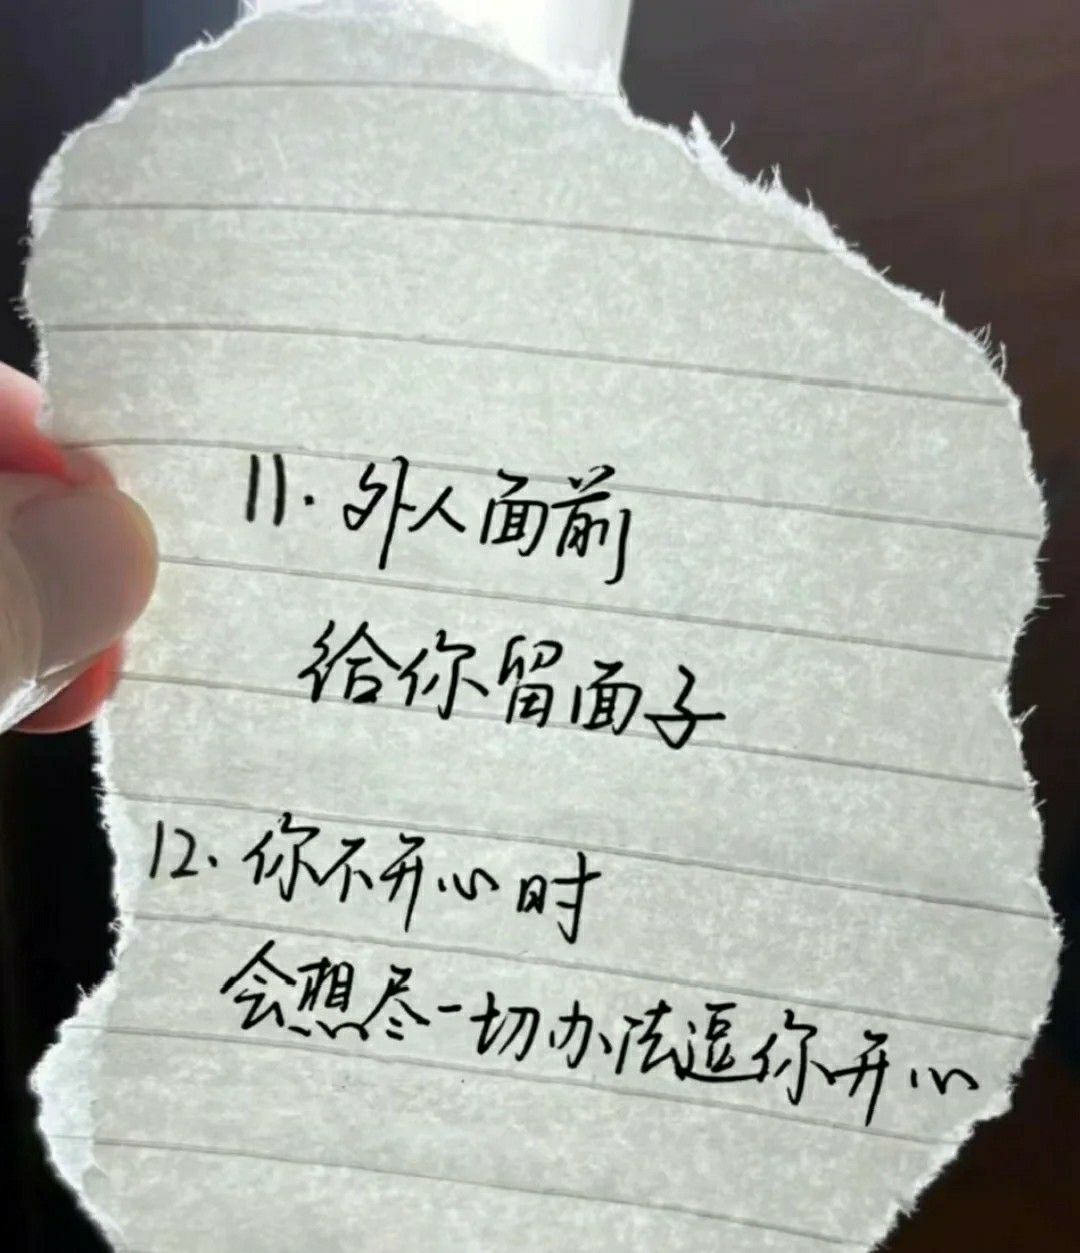 11. 外人面前
给你留面子
12. 你不开心时
会想尽一切办法逗你开心